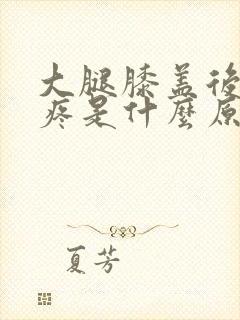 大腿膝盖後
疼是什麼原
夏芳